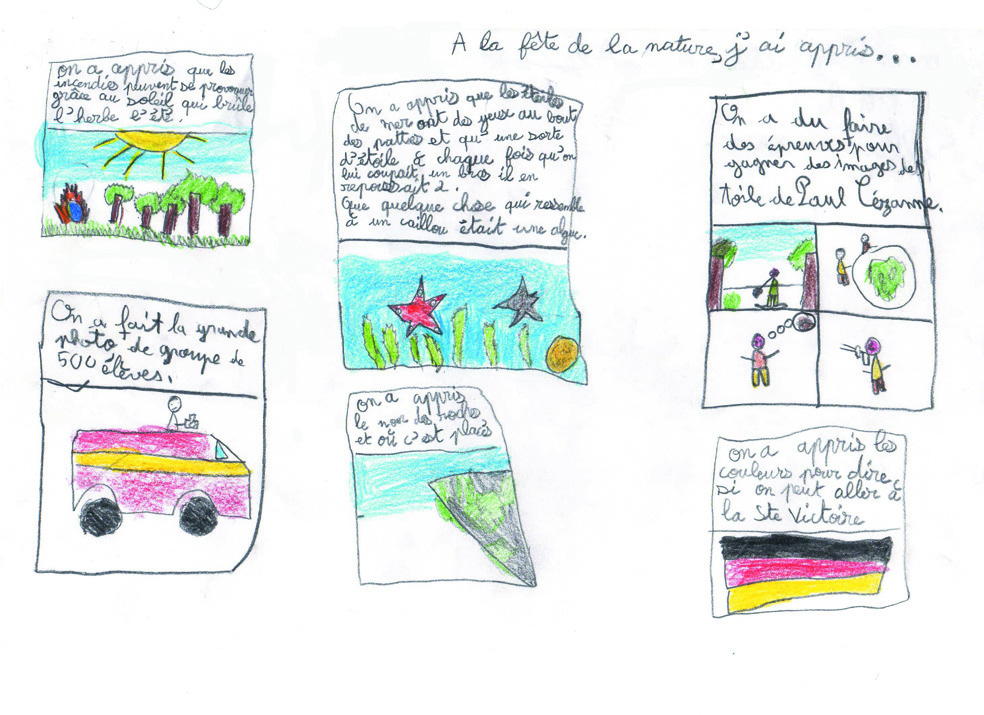 A la fête de la nature, j'ai appris...
on a appris que les
incendies peuvent se provoquer
grâce au soleil qui brûle
l'herbe l'été.
On a fait la grande
photo de groupe de
500 élèves.
On a appris que les étoiles
de mer ont des yeux au bout
des pattes et qu'une sorte
d'étoile & chaque fois qu'on
lui coupait un bras il en
repoussait 2.
Que quelque chose qui ressemble
à un caillou était une algue.
on a appris
le nom des roches
et où c'est placés
On a du faire
des épreuves pour
gagner des images des
toile de Paul Cézanne.
on a appris les
couleurs pour dire
si on peut aller à
la Ste Victoire